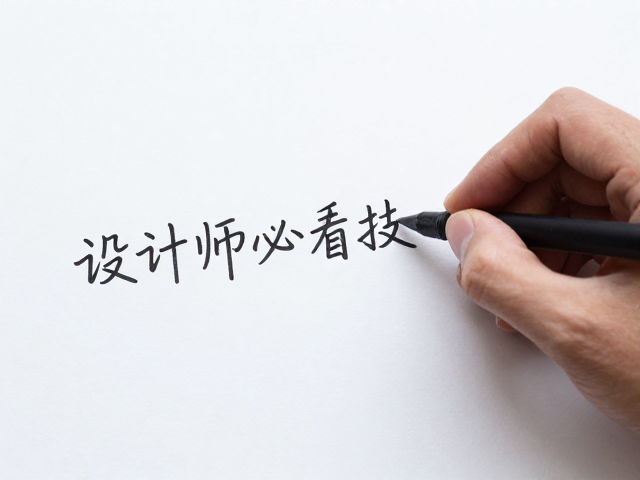 设计师必看技